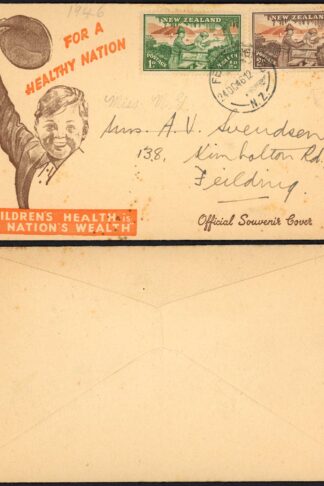 1946
FOR A
HEALTHY NATION
NEW ZEALAND
NEW ZEALAND
24 OC 46 12
N.Z.
Miss. N.Z.
Mrs. A. V. Svendsen
138, Kimbolton Rd
Feilding.
ILDREN'S HEALTH IS
NATION'S WEALTH
Official Souvenir Cover